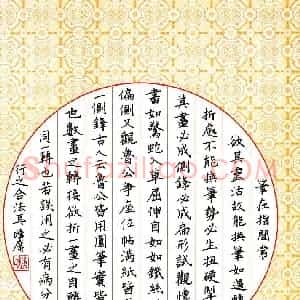 筆在指間
欲其靈活故能換筆如遇
折處不能換筆勢必生扭硬則
其畫必成偏鋒必成扁形試觀懷
書如驚蛇入草屈伸自如如鐵絲
偏側又觀魯公爭座位帖滿紙皆
側鋒古人云魯公皆用圓筆實皆
也數畫之轉換欲折一畫之自轉
同一轉也若誤用之必有病分
行之合法耳